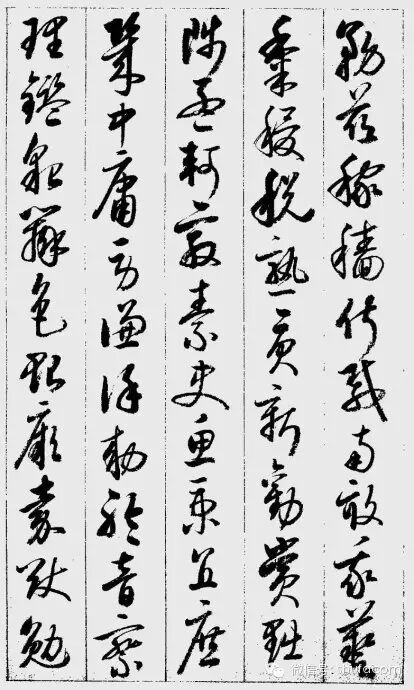 務茲稼穡俶載南畝我藝
黍稷稅熟貢新勸賞黜
陟孟軻敦素史魚秉直庶
幾中庸勞謙謹勅聆音察
理鑑貌辨色貽厥嘉猷勉
微信号: